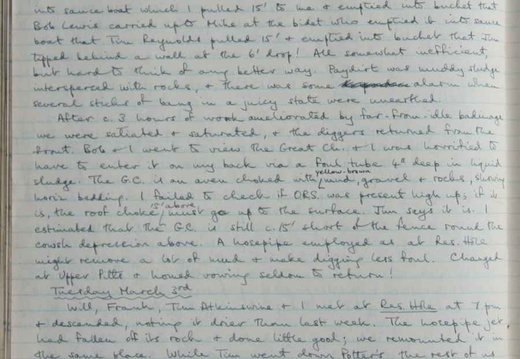 into sauce boat which I pulled 15' to me & emptied into bucket that
Bob Lewis carried up to Mike at the bidet who emptied it into sauce
boat that Tim Reynolds pulled 15' & emptied into bucket that Jim
tipped behind a wall at the 6' drop! All somewhat inefficient,
but hard to think of any better way. Paydirt was muddy sludge
interspersed with rocks, & there was some alarm when
several sticks of being in a juicy state were unearthed
After c. 3 hours of work ameliorated by far-from-idle badinage
we were satiated & saturated, & the diggers returned from the
front. Bob & I went to view the Great Ch. & I was horrified to
have to enter it on my back via a foul tube 4" deep in liquid
sludge. The G.C. is an aven choked with yellow-brown mud, gravel & rocks, showing
horiz bedding. I failed to check if ORS was present high up; if it
is, the roof choke 15' above must go up to the surface. Jim says it is. I
estimated that the G.C. is still c. 15' short of the fence round the
cowsh depression above. A hosepipe employed as at Res. Hole
might remove a lot of mud & make digging less foul. Changed
at Upper Pitts & homed vowing seldom to return!
Tuesday March 3rd
Will, Frank, Tim Atkinson & I met at Res. Hole at 7 pm
& descended, noting it drier than last week. The hosepipe jet
had fallen off its rock & done little good; we remounted it in
the same place. While Tim went down Potter's, the rest of us